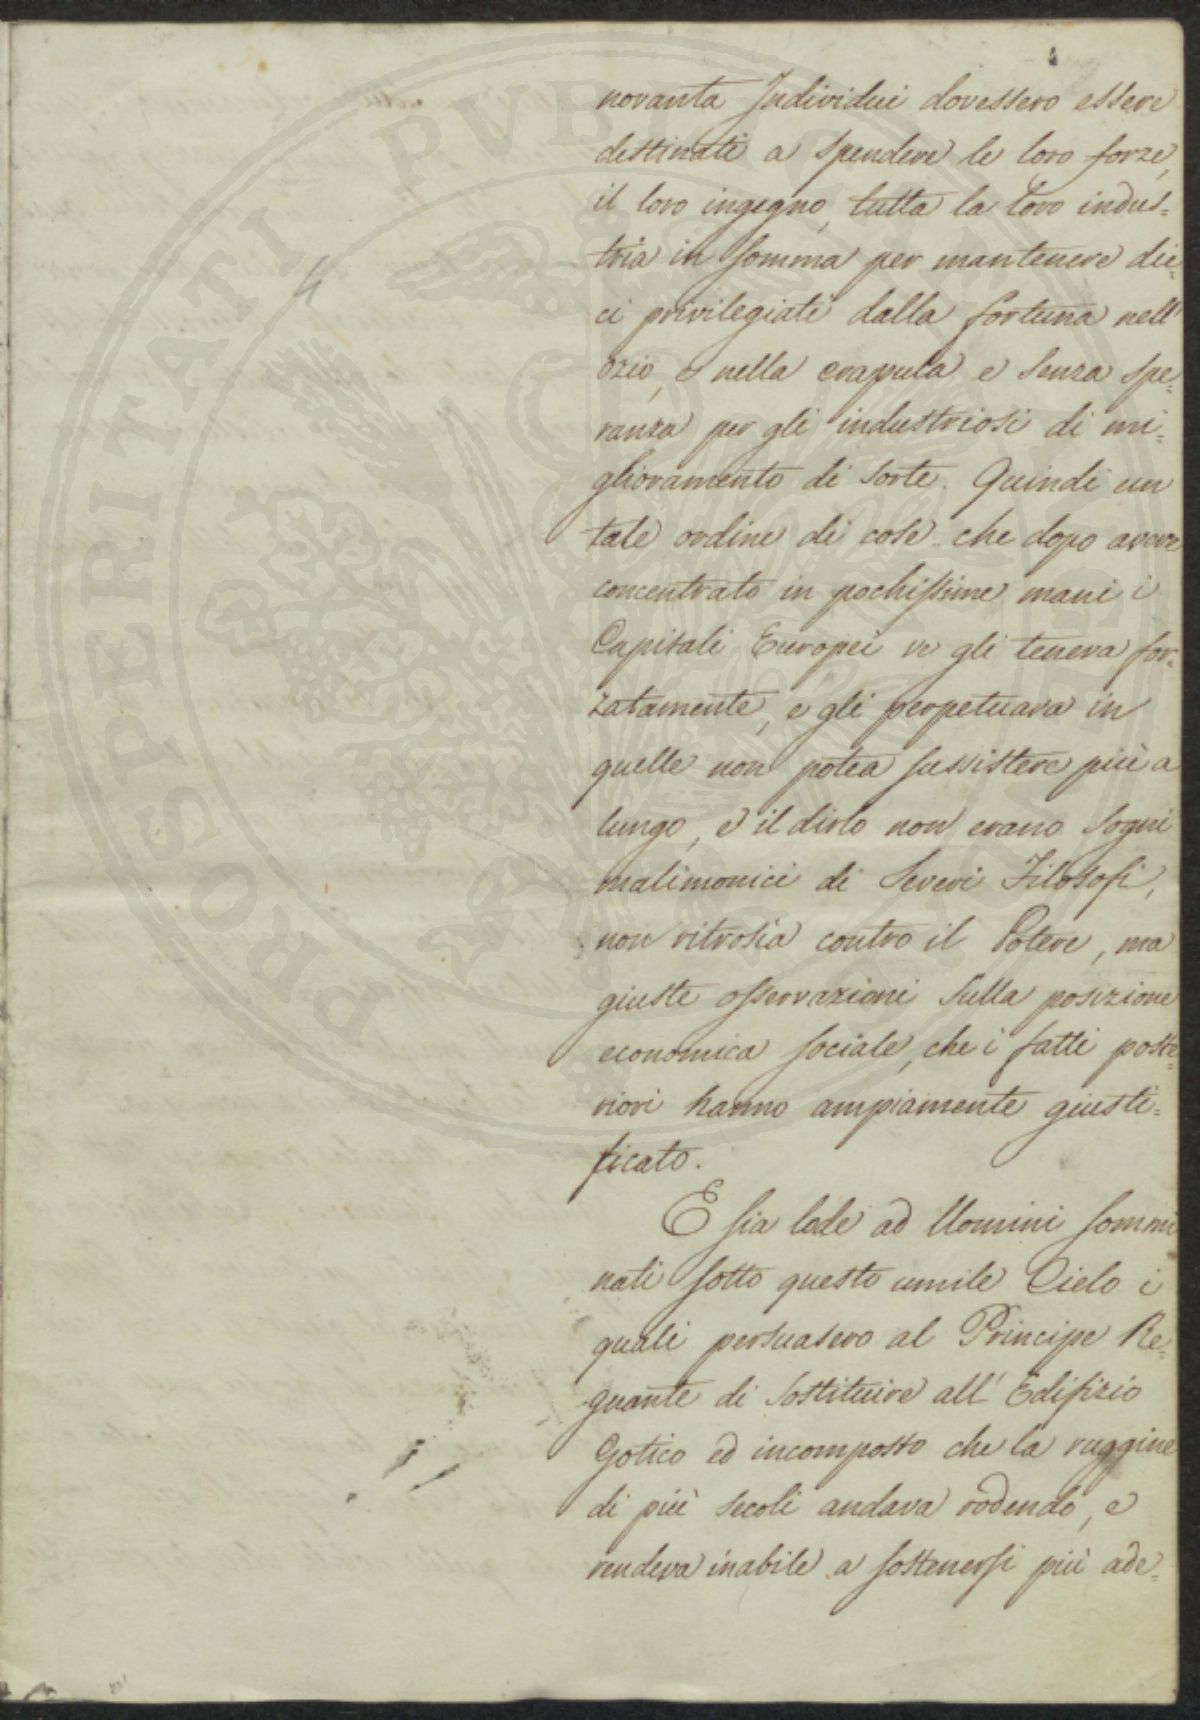 novanta Individui dovessero essere
destinati a spendere le loro forze,
il loro ingegno, tutta la loro indus=
tria in somma per mantenere die=
ci privilegiati dalla fortuna nell'
ozio, e nella crapula e senza spe=
ranza per gli industriosi di mi=
glioramento di sorte. Quindi un
tale ordine di cose che dopo avere
concentrato in pochissime mani i
Capitali Europei ve gli teneva for=
zatamente, e gli perpetuava in
quelle non potea sussistere più a
lungo, e il dirlo non erano sogni
malimonici di Severi Filosofi,
non ritrosia contro il Potere, ma
giuste osservazioni sulla posizione
economica sociale, che i fatti poste=
riori hanno ampiamente giusti=
ficato.
E sia lode ad Uomini sommi
nati sotto questo umile Cielo i
quali persuasero al Principe Re=
gnante di sostituire all' Edifizio
Gotico ed incomposto che la ruggine
di più secoli andava rodendo, e
rendeva inabile a sostenersi più ade=
PROSPERITATI PUBLICAE